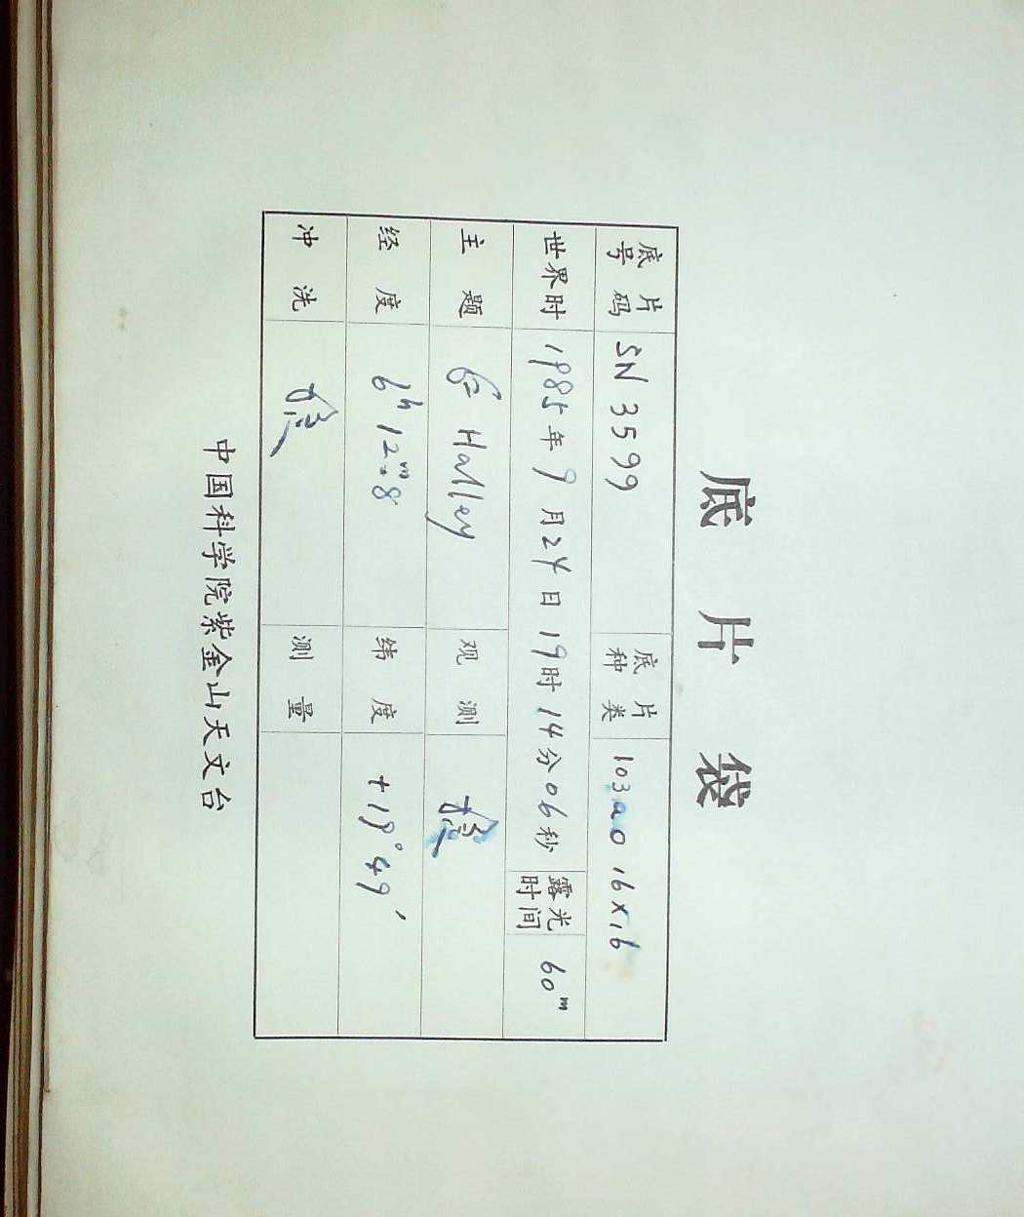 底片袋
底片号码 SN 3599 底片种类 103a0 16×16
世界时 1985年9月24日19时14分06秒 露光时间 60ᵐ
主题 Halley 观测
经度 6ʰ12ᵐ.8 纬度 +19°49′
冲洗 测量
中国科学院紫金山天文台